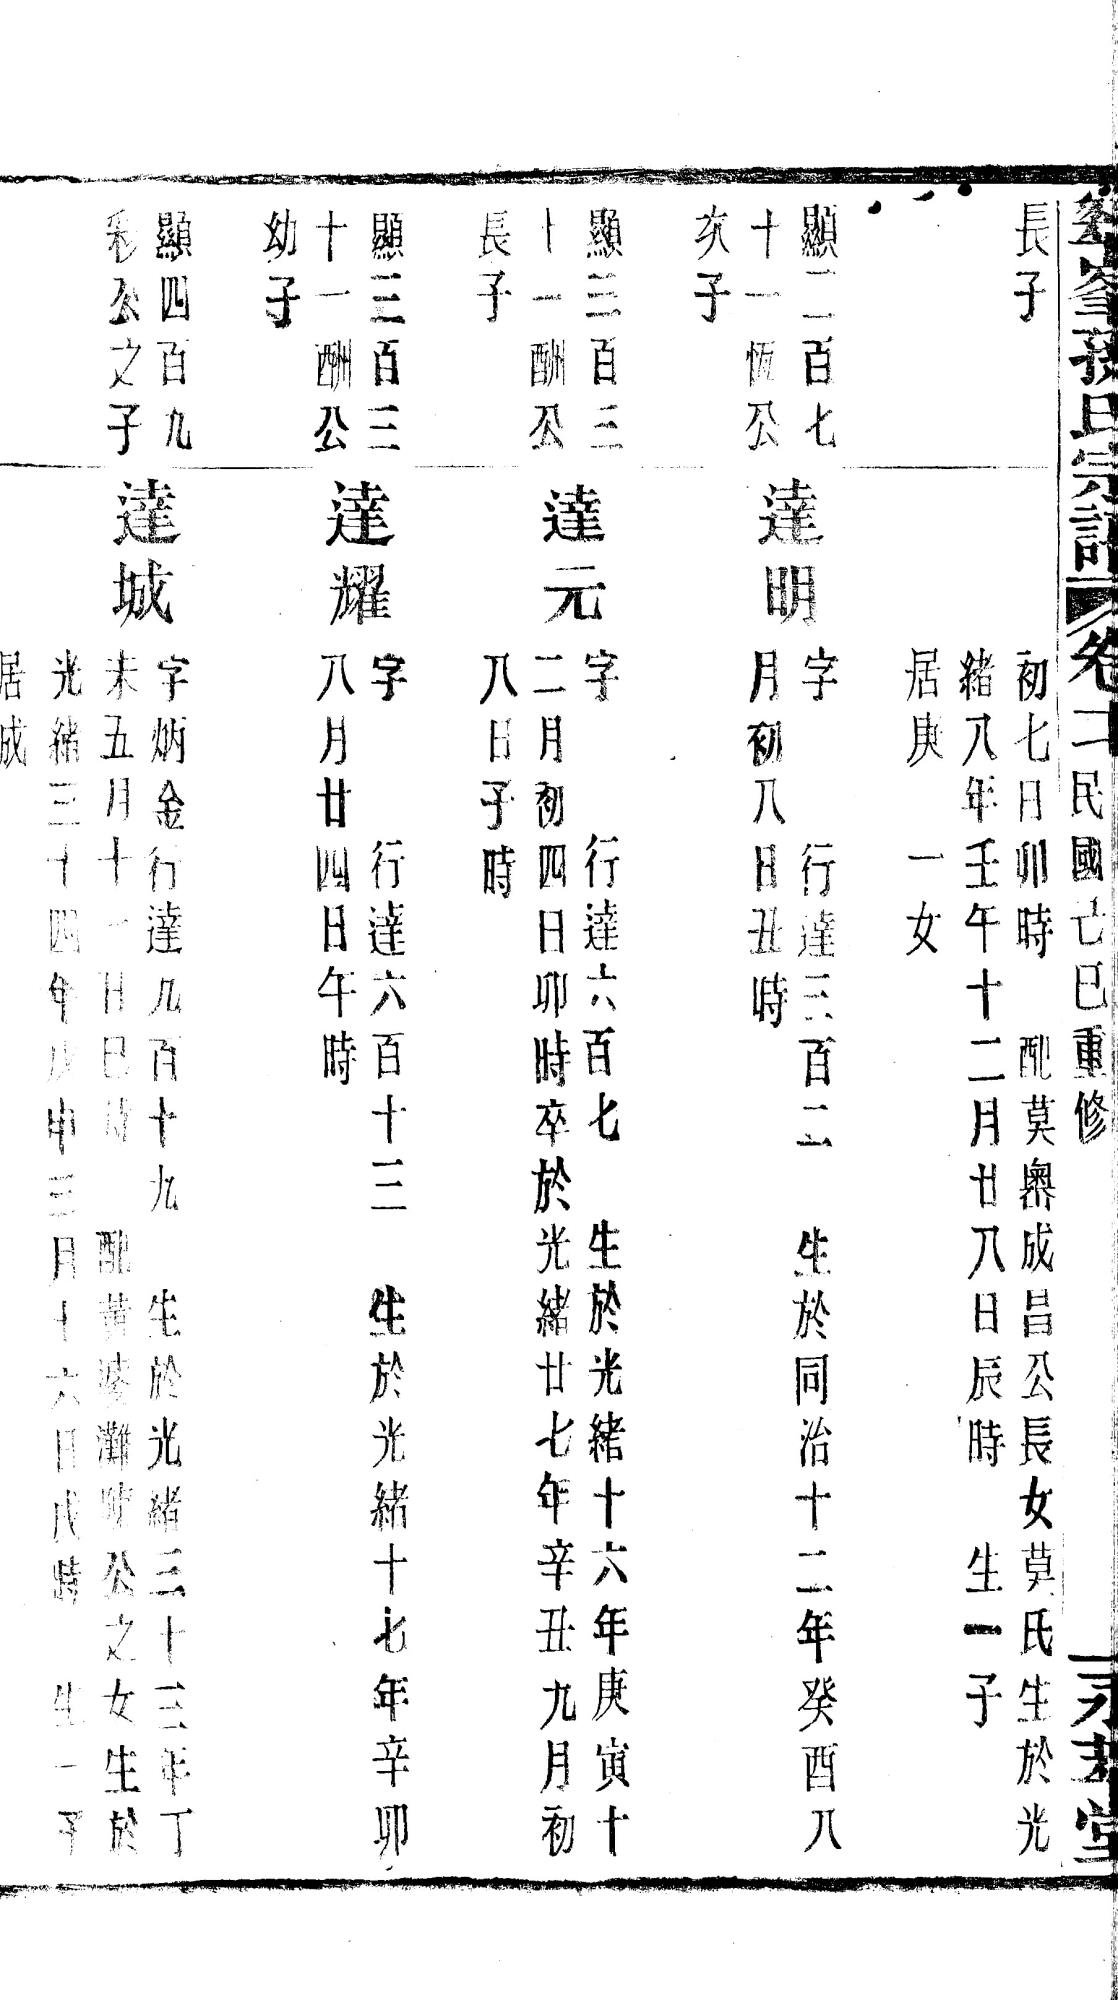 峯孫氏宗譜 卷二 民國己巳重修 堂
長子
初七日卯時 配莫奧成昌公長女莫氏生於光
緒八年壬午十二月廿八日辰時 生一子
居庚 一女
顯二百七
十一恆公
次子
達明
字 行達三百二 生於同治十二年癸酉八
月初八日丑時
顯三百三
十一酬公
長子
達元
字 行達六百七 生於光緒十六年庚寅十
二月初四日卯時卒於光緒廿七年辛丑九月初
八日子時
顯三百三
十一酬公
幼子
達耀
字 行達六百十三 生於光緒十七年辛卯
八月廿四日午時
顯四百九
彩公之子
達城
字炳金行達九百十九 生於光緒三十三年丁
未五月十一日巳時 配黃灘公之女生於
光緒三十四年戊申三月十六日戌時 生一子
居成